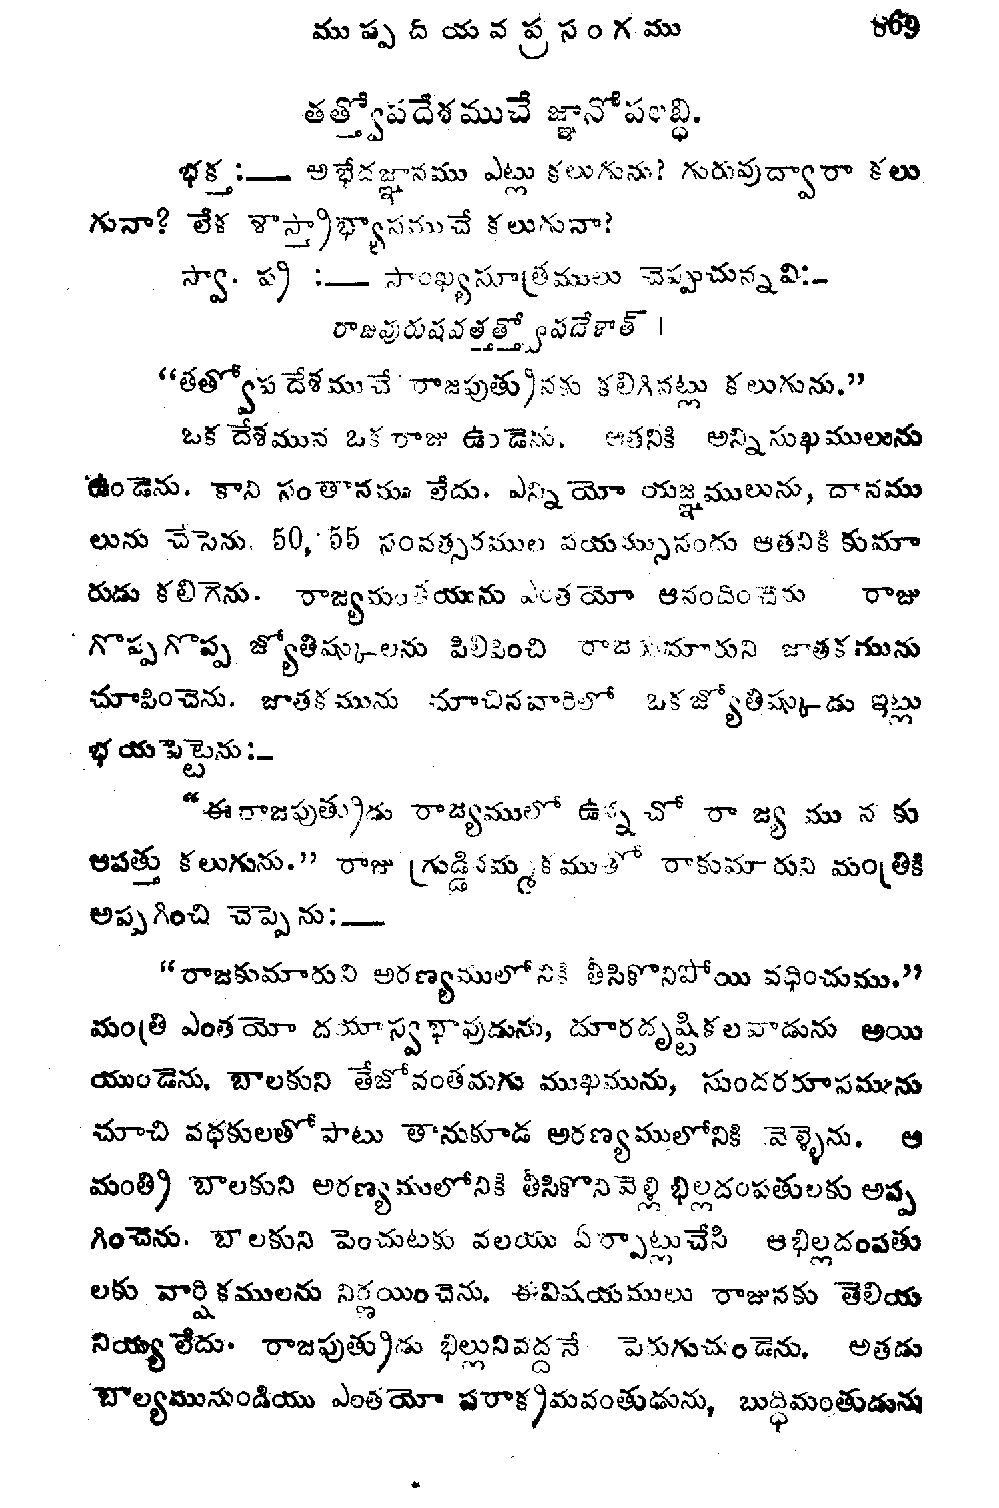 ముప్పదియవ ప్రసంగము
తత్త్వోపదేశముచే జ్ఞానోపలబ్ధి.
భక్త :— అభేదజ్ఞానము ఎట్లు కలుగును? గురువుద్వారా కలు
గునా? లేక శాస్త్రాభ్యాసముచే కలుగునా?
స్వా. ప్ర :— సాంఖ్యసూత్రములు చెప్పుచున్నవి:—
రాజపురుషవత్తత్త్వోపదేశాత్ ।
“తత్వోపదేశముచే రాజపుత్రునకు కలిగినట్లు కలుగును.”
ఒక దేశమున ఒక రాజు ఉండెను. ఆతనికి అన్ని సుఖములును
ఉండెను. కాని సంతానము లేదు. ఎన్నియో యజ్ఞములును, దానము
లును చేసెను. 50, 55 సంవత్సరముల వయస్సునందు ఆతనికి కుమా
రుడు కలిగెను. రాజ్యమంతయును ఎంతయో ఆనందించెను రాజు
గొప్పగొప్ప జ్యోతిష్కులను పిలిపించి రాజకుమారుని జాతకమును
చూపించెను. జాతకమును చూచినవారిలో ఒకజ్యోతిష్కుడు ఇట్లు
భయపెట్టెను:—
“ఈ రాజపుత్రుడు రాజ్యములో ఉన్నచో రాజ్యమునకు
ఆపత్తు కలుగును.” రాజు గ్రుడ్డినమ్మకముతో రాకుమారుని మంత్రికి
అప్పగించి చెప్పెను:—
“రాజకుమారుని అరణ్యములోనికి తీసికొనిపోయి వధించుము.”
మంత్రి ఎంతయో దయాస్వభావుడును, దూరదృష్టికలవాడును అయి
యుండెను. బాలకుని తేజోవంతమగు ముఖమును, సుందరరూపమును
చూచి వధకులతోపాటు తానుకూడ అరణ్యములోనికి వెళ్ళెను. ఆ
మంత్రి బాలకుని అరణ్యములోనికి తీసికొనివెళ్లి భిల్లదంపతులకు అప్ప
గించెను. బాలకుని పెంచుటకు వలయు ఏర్పాట్లుచేసి ఆభిల్లదంపతు
లకు వార్షికములను నిర్ణయించెను. ఈవిషయములు రాజునకు తెలియ
నియ్యలేదు. రాజపుత్రుడు భిల్లునివద్దనే పెరుగుచుండెను. అతడు
బాల్యమునుండియు ఎంతయో పరాక్రమవంతుడును, బుద్ధిమంతుడును